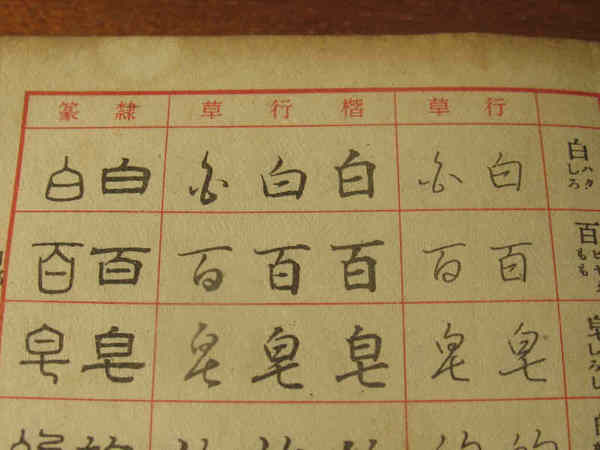 行 草 楷 行 草 隷 篆
白 ハク しろ 白 白 白 白 白 白 白
百 ヒヤク もも 百 百 百 百 百 百 百
皂 皂 皂 皂 皂 皂 皂 皂